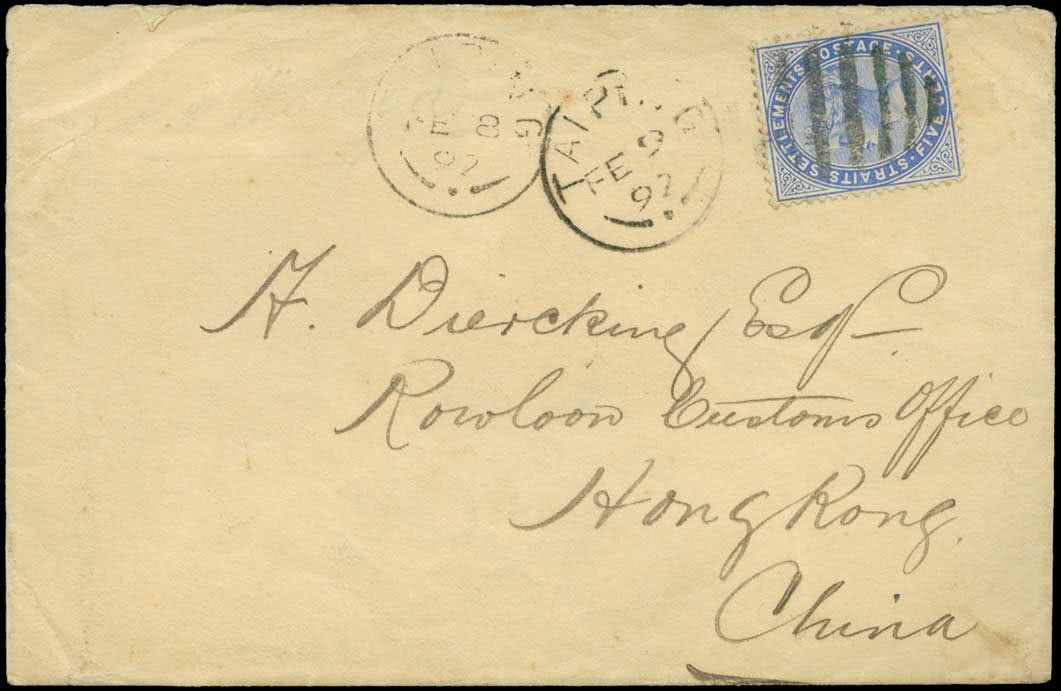 FE 8
97
TAIPING
FE 9
97
STRAITS SETTLEMENTS POSTAGE · FIVE CENTS
H. Diercking, Esqr
Kowloon Customs Office
Hong Kong.
China